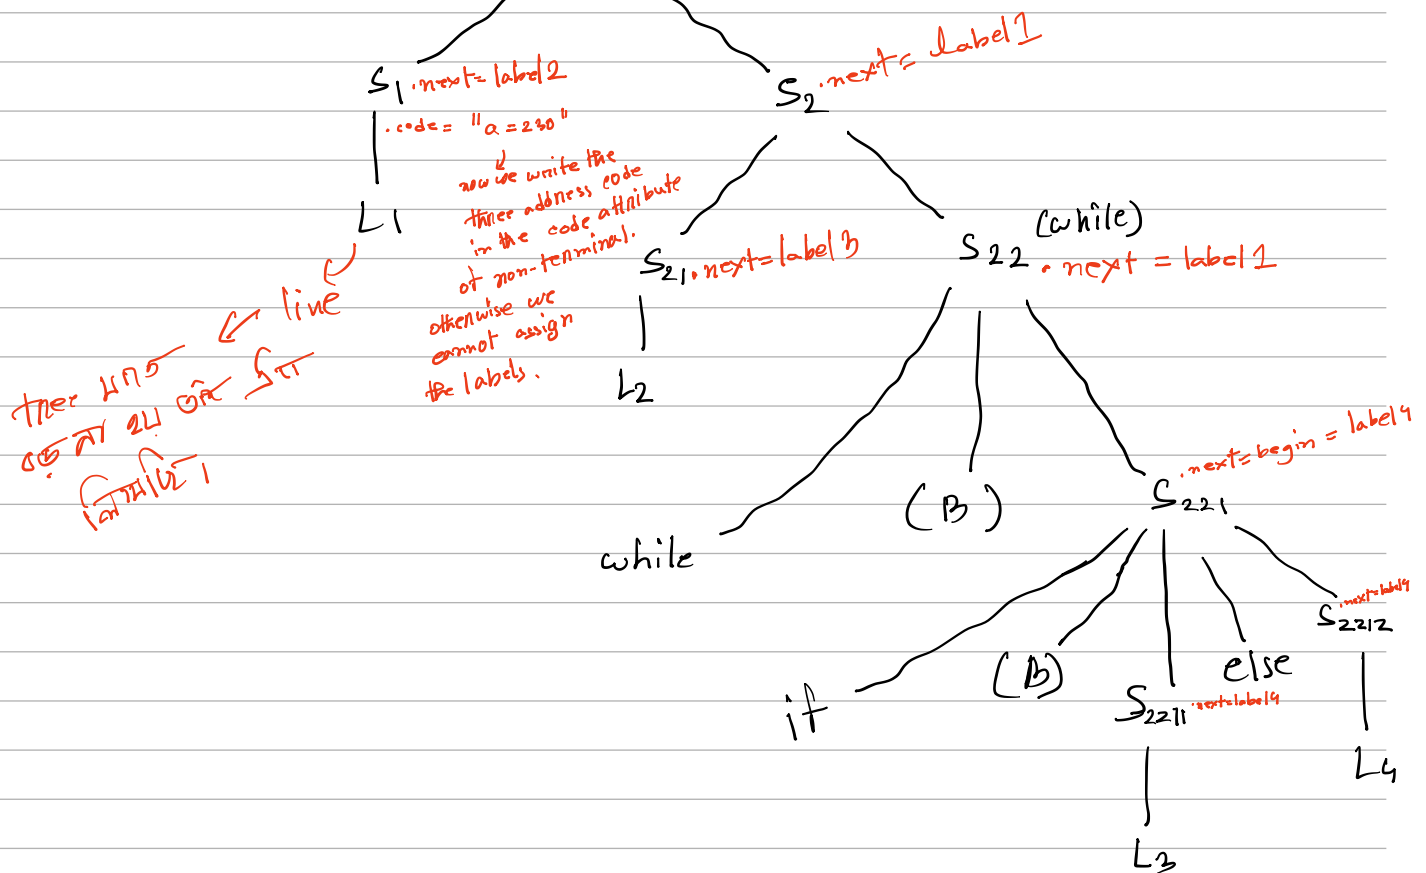 S1 .next=label2
S2 .next= label1
.code= "a=230"
now we write the
three address code
in the code attribute
of non-terminal.
otherwise we
cannot assign
the labels.
L1
line
tree যাতে
বড় না হয় তাই
S21 .next=label3
L2
S22 (while)
.next = label1
while
(B)
S221 .next=begin = label4
if
(B)
S2211 .next=label4
else
S2212 .next=label4
L3
L4